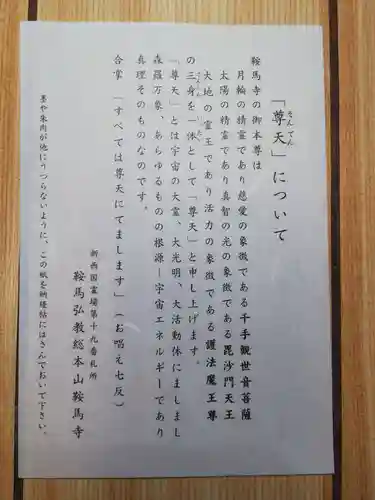 「尊天」について
そんてん
鞍馬寺の御本尊は
月輪の精霊であり慈愛の象徴である千手観世音菩薩
太陽の精霊であり真智の光の象徴である毘沙門天王
大地の霊王であり活力の象徴である護法魔王尊
の三身を一体として「尊天」と申し上げます。
「尊天」とは宇宙の大霊、大光明、大活動体にましまし
森羅万象、あらゆるものの根源―宇宙エネルギーであり
真理そのものなのです。
合掌 「すべては尊天にてまします」(お唱え七反)
新西国霊場第十九番札所
鞍馬弘教総本山鞍馬寺
墨や朱肉が他にうつらないように、この紙を納経帖にはさんでおいて下さい。